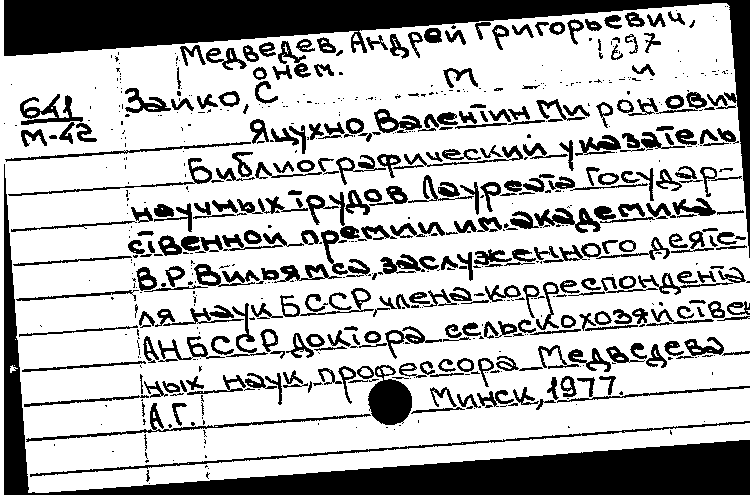 Медведев, Андрей Григорьевич,
о нём. 1897
641 Зайко, С М и
М-42 Яцухно, Валентин Миронович
Библиографический указатель
научных трудов Лауреата Государ-
ственной премии им. академика
В.Р. Вильямса, заслуженного деяте-
ля наук БССР, члена-корреспондента
АН БССР, доктора сельскохозяйствен
ных наук, профессора Медведева
А.Г. Минск, 1977.